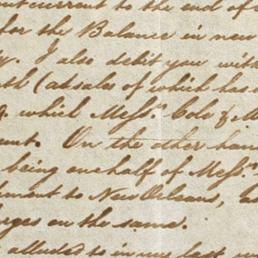 current to the end of
for the Balance in new
I also debit you with
(at sales of which has
which Mess.rs Cole &
On the other han
being one half of Mess.rs
to New Orleans,
on the same.
alluded to in my last